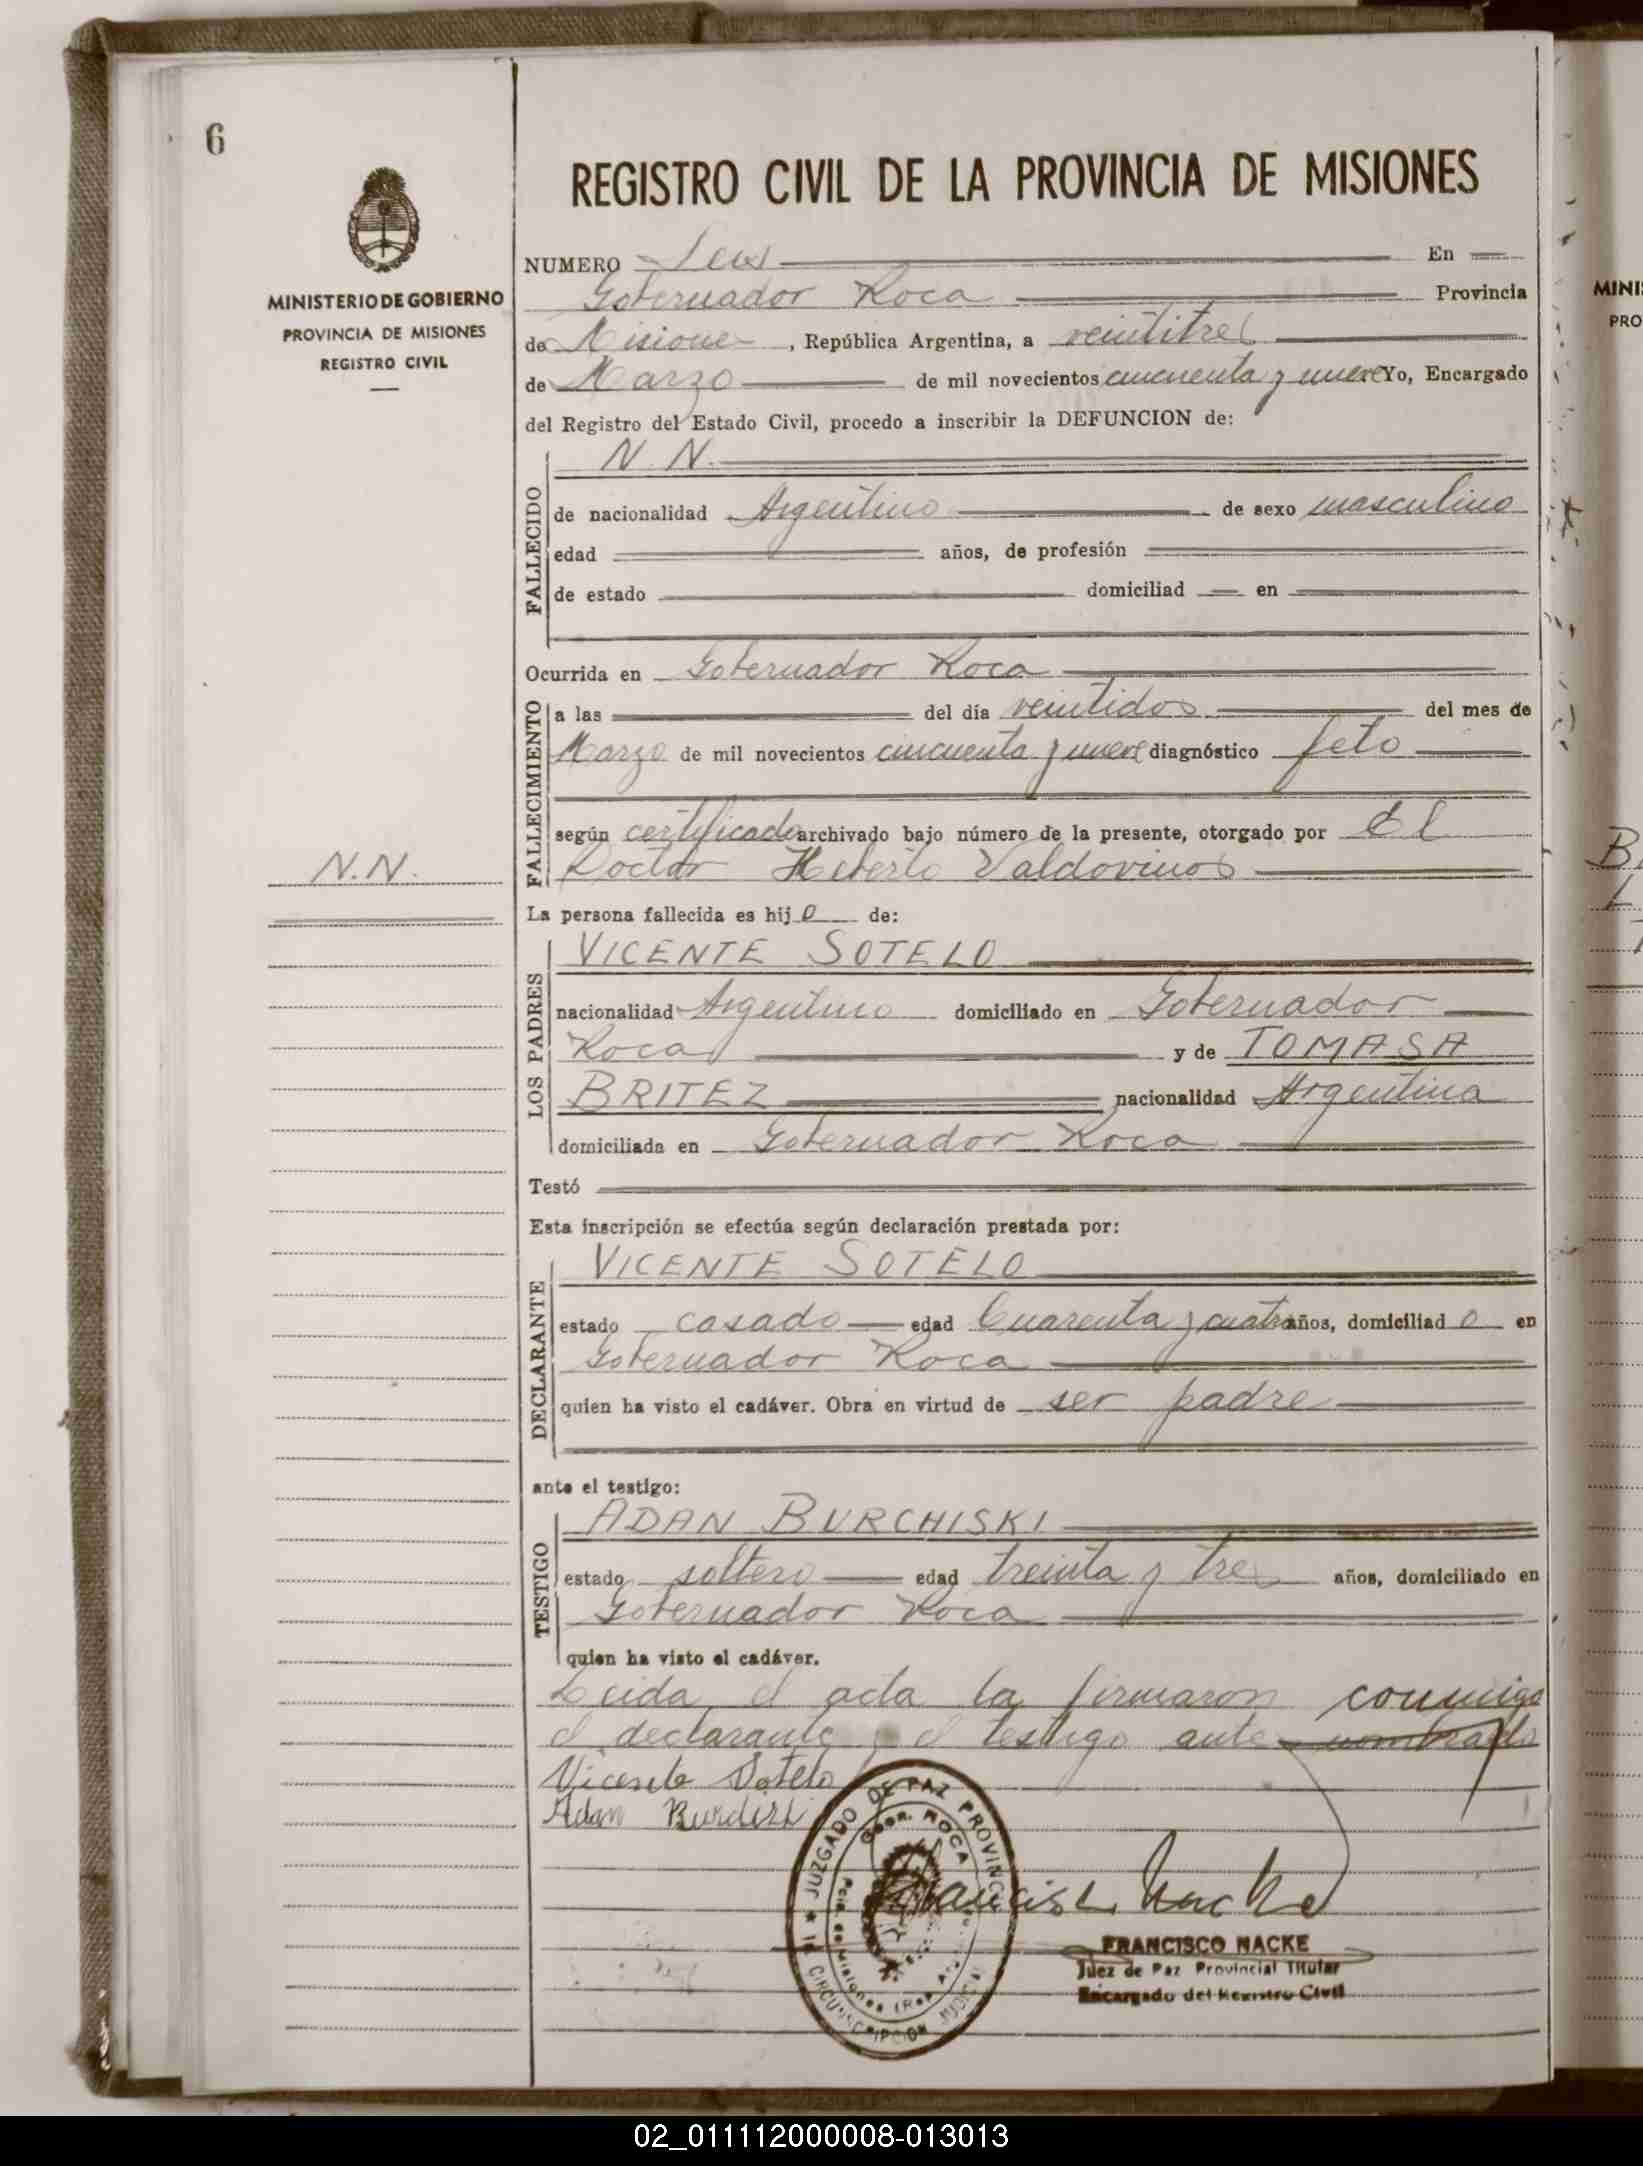 6
REGISTRO CIVIL DE LA PROVINCIA DE MISIONES
MINISTERIO DE GOBIERNO
PROVINCIA DE MISIONES
REGISTRO CIVIL
NUMERO Seis En
Gobernador Roca Provincia
de Misiones, República Argentina, a veintitres
de Marzo de mil novecientos cincuenta y nueve Yo, Encargado
del Registro del Estado Civil, procedo a inscribir la DEFUNCION de:
FALLECIDO
N. N.
de nacionalidad Argentino de sexo masculino
edad años, de profesión
de estado domiciliad en
Ocurrida en Gobernador Roca
FALLECIMIENTO
a las del día veintidos del mes de
Marzo de mil novecientos cincuenta y nueve diagnóstico feto
según certificado archivado bajo número de la presente, otorgado por el
Doctor Heberto Valdovinos
N.N.
La persona fallecida es hijo de:
LOS PADRES
VICENTE SOTELO
nacionalidad Argentino domiciliado en Gobernador
Roca y de TOMASA
BRITEZ nacionalidad Argentina
domiciliada en Gobernador Roca
Testó
Esta inscripción se efectúa según declaración prestada por:
DECLARANTE
VICENTE SOTELO
estado casado edad Cuarenta y cuatro años, domiciliado en
Gobernador Roca
quien ha visto el cadáver. Obra en virtud de ser padre
ante el testigo:
TESTIGO
ADAN BURCHISKI
estado soltero edad treinta y tres años, domiciliado en
Gobernador Roca
quien ha visto el cadáver.
Leida el acta la firmaron conmigo
el declarante y el testigo ante nombrado
Vicente Sotelo
Adan
JUZGADO DE PAZ PROVINCIAL
Gdor. ROCA
Pcia. de Misiones (Rep. Arg.)
CIRCUNSCRIPCION JUDICIAL
Francisco Nacke
FRANCISCO NACKE
Juez de Paz Provincial Titular
Encargado del Registro Civil
MINIS
PRO
02_011112000008-013013